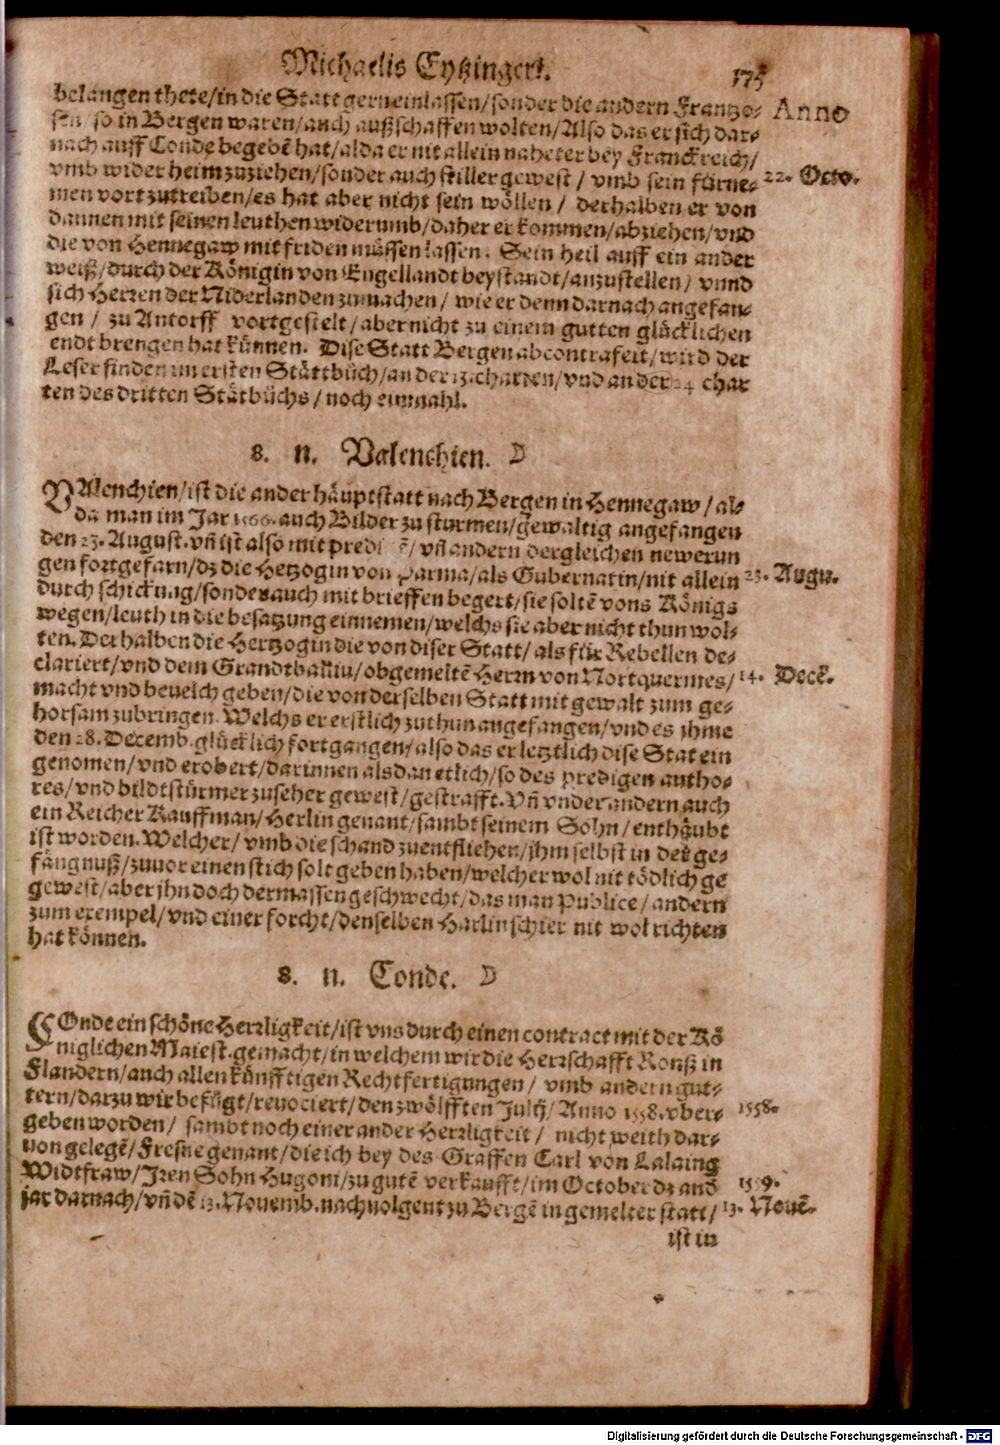 Michaelis Eytzingeri. 175
belangen thete/in die Statt gern einlassen/sonder die andern Frantzo-
sen/so in Bergen waren/auch außschaffen wolten/Also das er sich dar-
nach auff Conde begebē hat/alda er nit allein naheter bey Franckreich/
vmb wider heim zuziehen/sonder auch stiller gewest/ vmb sein fürne-
men vort zutreiben/es hat aber nicht sein wöllen/ derhalben er von
dannen mit seinen leuthen widerumb/daher er kommen/abziehen/vnd
die von Hennegaw mit friden müssen lassen. Sein heil auff ein ander
weiß/durch der Königin von Engellandt beystandt/anzustellen/ vnnd
sich Herren der Niderlanden zumachen/ wie er denn darnach angefan-
gen/ zu Antorff vortgestelt/aber nicht zu einem gutten glücklichen
endt brengen hat künnen. Dise Statt Bergen abcontrafeit/wird der
Leser finden im ersten Stättbüch/an der 13. charten/vnd an der 24 char
ten des dritten Stätbüchs/noch einmahl.
Anno
22. Octo.
8. n. Valenchien. ☽
VAlenchien/ist die ander häuptstatt nach Bergen in Hennegaw/al-
da man im Jar 1566. auch Bilder zu stürmen/gewaltig angefangen
den 23. August. vñ ist also mit predi ē/vñ andern dergleichen newerun
gen fortgefarn/dz die Hetzogin von Parma/als Gubernatin/nit allein
durch schickung/sonder auch mit brieffen begert/sie soltē vons Königs
wegen/leuth in die besatzung einnemen/welchs sie aber nicht thun wol-
ten. Derhalben die Hertzogin die von diser Statt/als für Rebellen de-
clariert/vnd dem Grandtballiu/obgemeltē Herrn von Nortquermes/
macht vnd bevelch geben/die von derselben Statt mit gewalt zum ge-
horsam zubringen. Welchs er erstlich zuthun angefangen/vnd es jhme
den 28. Decemb. glücklich fortgangen/also das er letztlich dise Stat ein
genomen/vnd erobert/darinnen alsdan etlich/so des predigen autho-
res/vnd bildtstürmer zuseher gewest/gestrafft. Vñ vnder andern auch
ein Reicher Kauffman/Herlin genant/sambt seinem Sohn/enthäubt
ist worden. Welcher/ vmb die schand zuentfliehen/jhm selbst in der ge-
fängnuß/zuvor einen stich solt geben haben/welcher wol nit tödlich ge
gewest/aber jhn doch dermassen geschwecht/das man publice/andern
zum exempel/vnd einer forcht/denselben Harlin schier nit wol richten
hat können.
23. Augu.
14. Decē.
8. n. Conde. ☽
COnde ein schöne Herrligkeit/ist vns durch einen contract mit der Kö
niglichen Maiest. gemacht/in welchem wir die Herrschafft Ronß in
Flandern/auch allen künfftigen Rechtfertigungen/ vmb andern gut-
tern/darzu wir befügt/revociert/den zwölfften Julij/Anno 1558. vber-
geben worden/ sambt noch einer ander Herrligkeit/ nicht weith dar-
von gelegē/Fresne genant/die ich bey des Graffen Carl von Lalaing
Widtfraw/Jren Sohn Hugoni/zu gutē verkaufft/im October dz and
jar darnach/vñ dē 13. Novemb. nachvolgent zu Bergē in gemelter statt/
ist in
1558.
1559.
13. Novē.
Digitalisierung gefördert durch die Deutsche Forschungsgemeinschaft - DFG